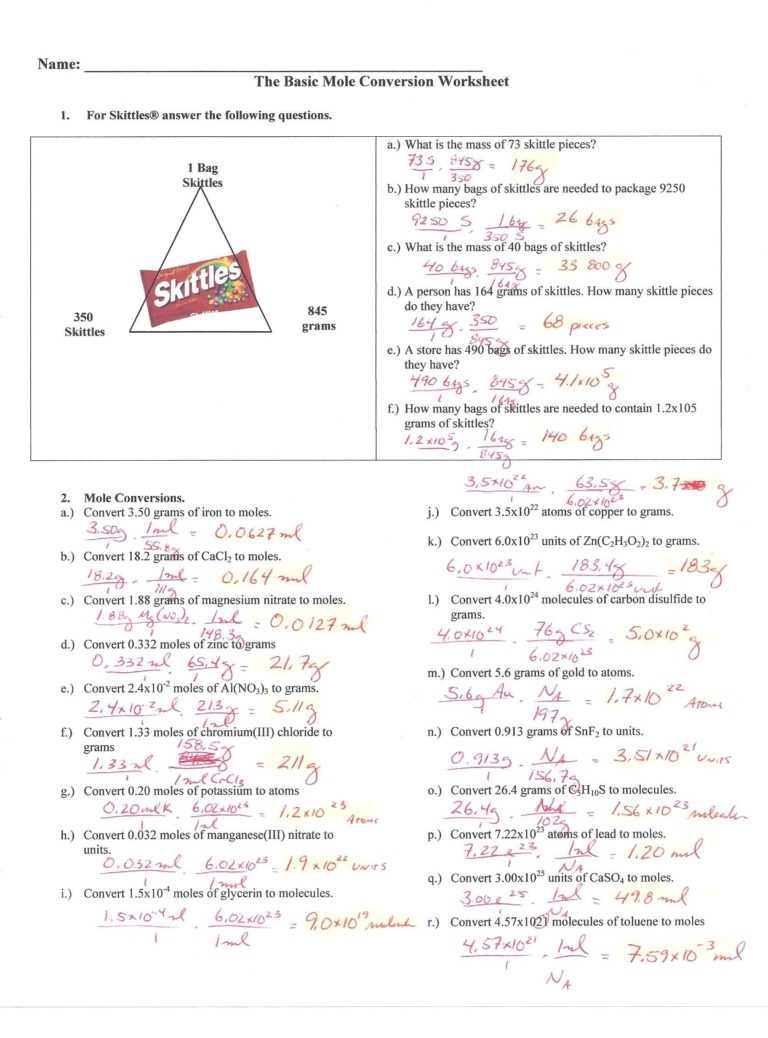 Name:
The Basic Mole Conversion Worksheet
1. For Skittles® answer the following questions.
1 Bag
Skittles
Skittles
350
Skittles
845
grams
a.) What is the mass of 73 skittle pieces?
73 S / 1 · 845g / 350 = 176g
b.) How many bags of skittles are needed to package 9250
skittle pieces?
9250 S / 1 · 1 bag / 350 S = 26 bags
c.) What is the mass of 40 bags of skittles?
40 bags · 845g / 1 bag = 33 800 g
d.) A person has 164 grams of skittles. How many skittle pieces
do they have?
164 g / 1 · 350 / 845g = 68 pieces
e.) A store has 490 bags of skittles. How many skittle pieces do
they have?
490 bags / 1 · 845g / 1 bag = 4.1x10^5 g
f.) How many bags of skittles are needed to contain 1.2x105
grams of skittles?
1.2x10^5 g · 1 bag / 845g = 140 bags
2. Mole Conversions.
a.) Convert 3.50 grams of iron to moles.
3.50g / 1 · 1ml / 55.8g = 0.0627 ml
b.) Convert 18.2 grams of CaCl₂ to moles.
18.2g / 1 · 1ml / 111g = 0.164 ml
c.) Convert 1.88 grams of magnesium nitrate to moles.
1.88g Mg(NO3)2 / 1 · 1ml / 148.3g = 0.0127 ml
d.) Convert 0.332 moles of zinc to grams
0.332 ml / 1 · 65.4g / 1 = 21.7g
e.) Convert 2.4x10⁻² moles of Al(NO₃)₃ to grams.
2.4x10^-2 ml · 213g / 1ml = 5.11g
f.) Convert 1.33 moles of chromium(III) chloride to
grams
1.33 ml / 1 · 158.5g / 1ml CrCl3 = 211g
g.) Convert 0.20 moles of potassium to atoms
0.20 ml K / 1 · 6.02x10^23 / 1ml = 1.2x10^23 Atoms
h.) Convert 0.032 moles of manganese(III) nitrate to
units.
0.032 ml / 1 · 6.02x10^23 / 1mol = 1.9x10^22 UNITS
i.) Convert 1.5x10⁻⁴ moles of glycerin to molecules.
1.5x10^-4 ml / 1 · 6.02x10^23 / 1ml = 9.0x10^19
3.5x10^22 Au / 1 · 63.5g / 6.02x10^23 = 3.7 g
j.) Convert 3.5x10²² atoms of copper to grams.
k.) Convert 6.0x10²³ units of Zn(C₂H₃O₂)₂ to grams.
6.0x10^23 unit / 1 · 183.4g / 6.02x10^23 unit = 183g
l.) Convert 4.0x10²⁴ molecules of carbon disulfide to
grams.
4.0x10^24 / 1 · 76g CS2 / 6.02x10^23 = 5.0x10^2 g
m.) Convert 5.6 grams of gold to atoms.
5.6g Au / 1 · NA / 197g = 1.7x10^22 Atoms
n.) Convert 0.913 grams of SnF₂ to units.
0.913g / 1 · NA / 156.7g = 3.51x10^21 UNITS
o.) Convert 26.4 grams of C₅H₁₀S to molecules.
26.4g / 1 · NA / 102g = 1.56x10^23
p.) Convert 7.22x10²³ atoms of lead to moles.
7.22 e^23 / 1 · 1ml / NA = 1.20 ml
q.) Convert 3.00x10²⁵ units of CaSO₄ to moles.
3.00 e^25 / 1 · 1ml / NA = 49.8 ml
r.) Convert 4.57x1021 molecules of toluene to moles
4.57x10^21 / 1 · 1ml / NA = 7.59x10^-3 ml